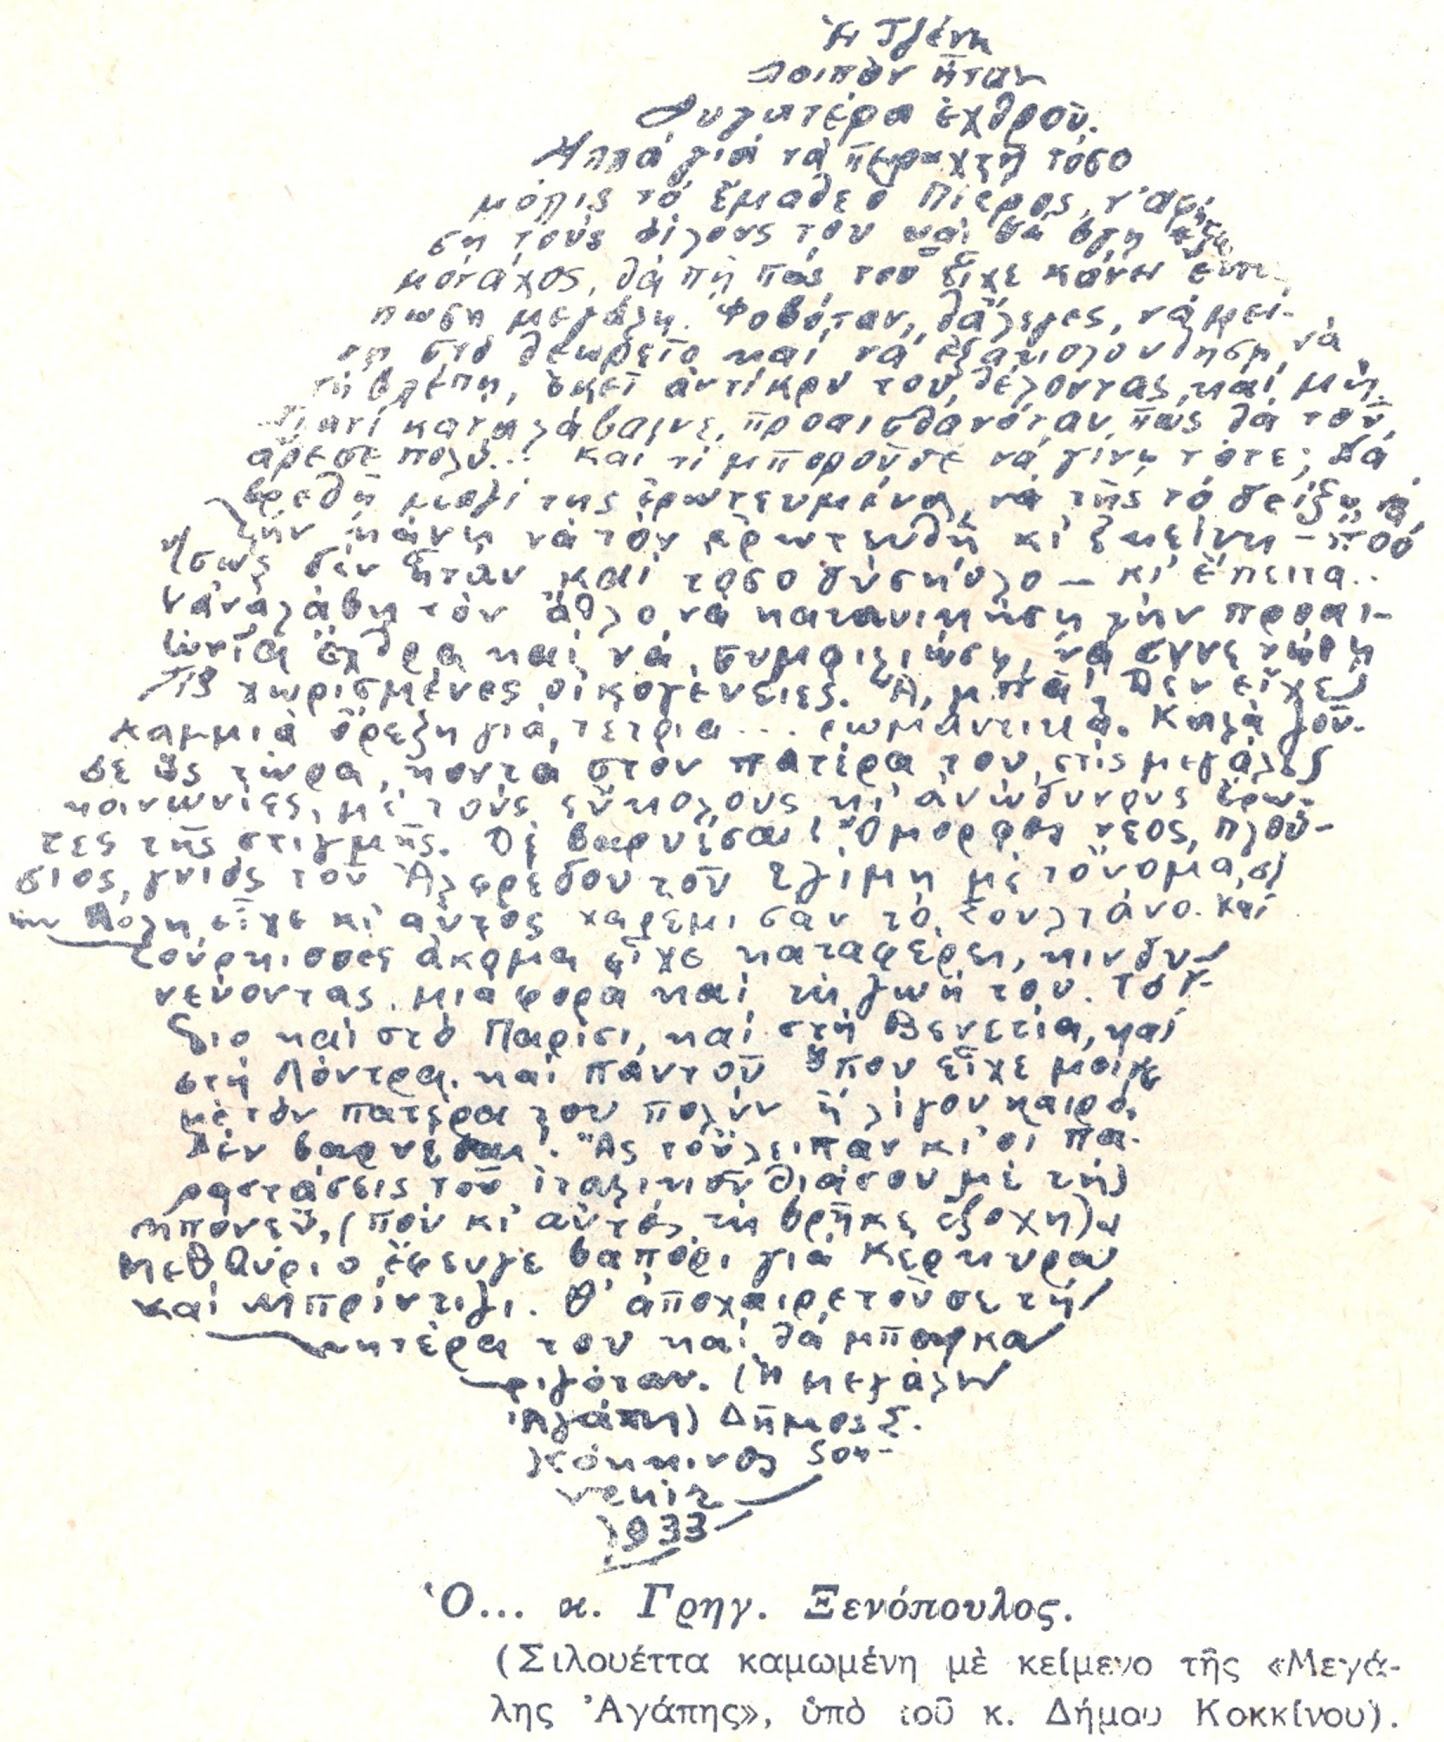 Ἡ Τζένη
λοιπὸν ἦταν
θυγατέρα ἐχθροῦ.
Ἀλλὰ γιὰ νὰ ταραχτῇ τόσο
μόλις τὸ ἔμαθε ὁ Πιέρος, ν' ἀφί-
ση τοὺς φίλους του καὶ νὰ βγῇ ἔξω
μονάχος, θὰ πῇ πὼς τοῦ εἶχε κάνει ἐντύ-
πωση μεγάλη. Φοβόταν, θἄλεγες, νὰ μεί-
νη στὸ θεωρεῖο καὶ νὰ ἐξακολουθήση νὰ
τὴ βλέπη, ἐκεῖ ἀντίκρυ του, θέλοντας καὶ μή.
Γιατί καταλάβαινε, προαισθανόταν πὼς θὰ τοῦ
ἄρεσε πολύ... Καὶ τί μποροῦσε νὰ γίνη τότε; Νὰ
βρεθῇ μαζί της ἐρωτευμένος, νὰ τῆς τὸ δείξη, νὰ
τὴν κάνη νὰ τὸν ἐρωτευθῇ κι' ἐκείνη — ποὺ
ἴσως δὲν ἦταν καὶ τόσο δύσκολο — κι' ἔπειτα..
νἀναλάβη τὸν ἆθλο νὰ κατανικήση τὴν προαι-
ώνια ἔχθρα καὶ νὰ συμφιλιώση, νὰ συνενώση
τὶς χωρισμένες οἰκογένειες. Ἄ, μπά! Δὲν εἶχε
καμμιὰ ὄρεξη γιὰ τέτοια... ρωμαντικά. Καλὰ ζοῦ-
σε ὣς τώρα, κοντὰ στὸν πατέρα του, στὶς μεγάλες
κοινωνίες, μὲ τοὺς εὔκολους κι' ἀνώδυνους ἔρω-
τες τῆς στιγμῆς. Δὲ βαρυέσαι! Ὄμορφος νέος, πλού-
σιος, γυιὸς τοῦ Ἀλφρέδου τοῦ Τζίμη μὲ τὄνομα, σ'
τὴν Πόλη εἶχε κι' αὐτὸς χαρέμι σὰν τὸ Σουλτάνο. Καὶ
Τούρκισσες ἀκόμα εἶχε καταφέρει, κινδυ-
νεύοντας μιὰ φορὰ καὶ τὴ ζωή του. Τὸ ἴ-
διο καὶ στὸ Παρίσι, καὶ στὴ Βενετία, καὶ
στὴ Λόντρα, καὶ παντοῦ ὅπου εἶχε μείνει
μὲ τὸν πατέρα του πολὺν ἢ λίγον καιρό.
Δὲν βαρυέσαι! Ἂς τοὔλειπαν κι' οἱ πα-
ραστάσεις τοῦ ἰταλικοῦ θιάσου μὲ τὴ
Μπονέϋ, (ποὺ κι' αὐτὸς τὴ βρῆκε ἔξοχη)
Μεθαύριο ἔφευγε βαπόρι γιὰ Κέρκυρα
καὶ Μπρίντιζι. Θ' ἀποχαιρετοῦσε τὴ
μητέρα του καὶ θὰ μπαρκα
ριζόταν. (Ἡ μεγάλη
Ἀγάπη) Δῆμος Σ.
Κόκκινος Σου-
βενὶρ
1933
Ὁ... κ. Γρηγ. Ξενόπουλος.
(Σιλουέττα καμωμένη μὲ κείμενο τῆς «Μεγά-
λης Ἀγάπης», ὑπὸ τοῦ κ. Δήμου Κοκκίνου).